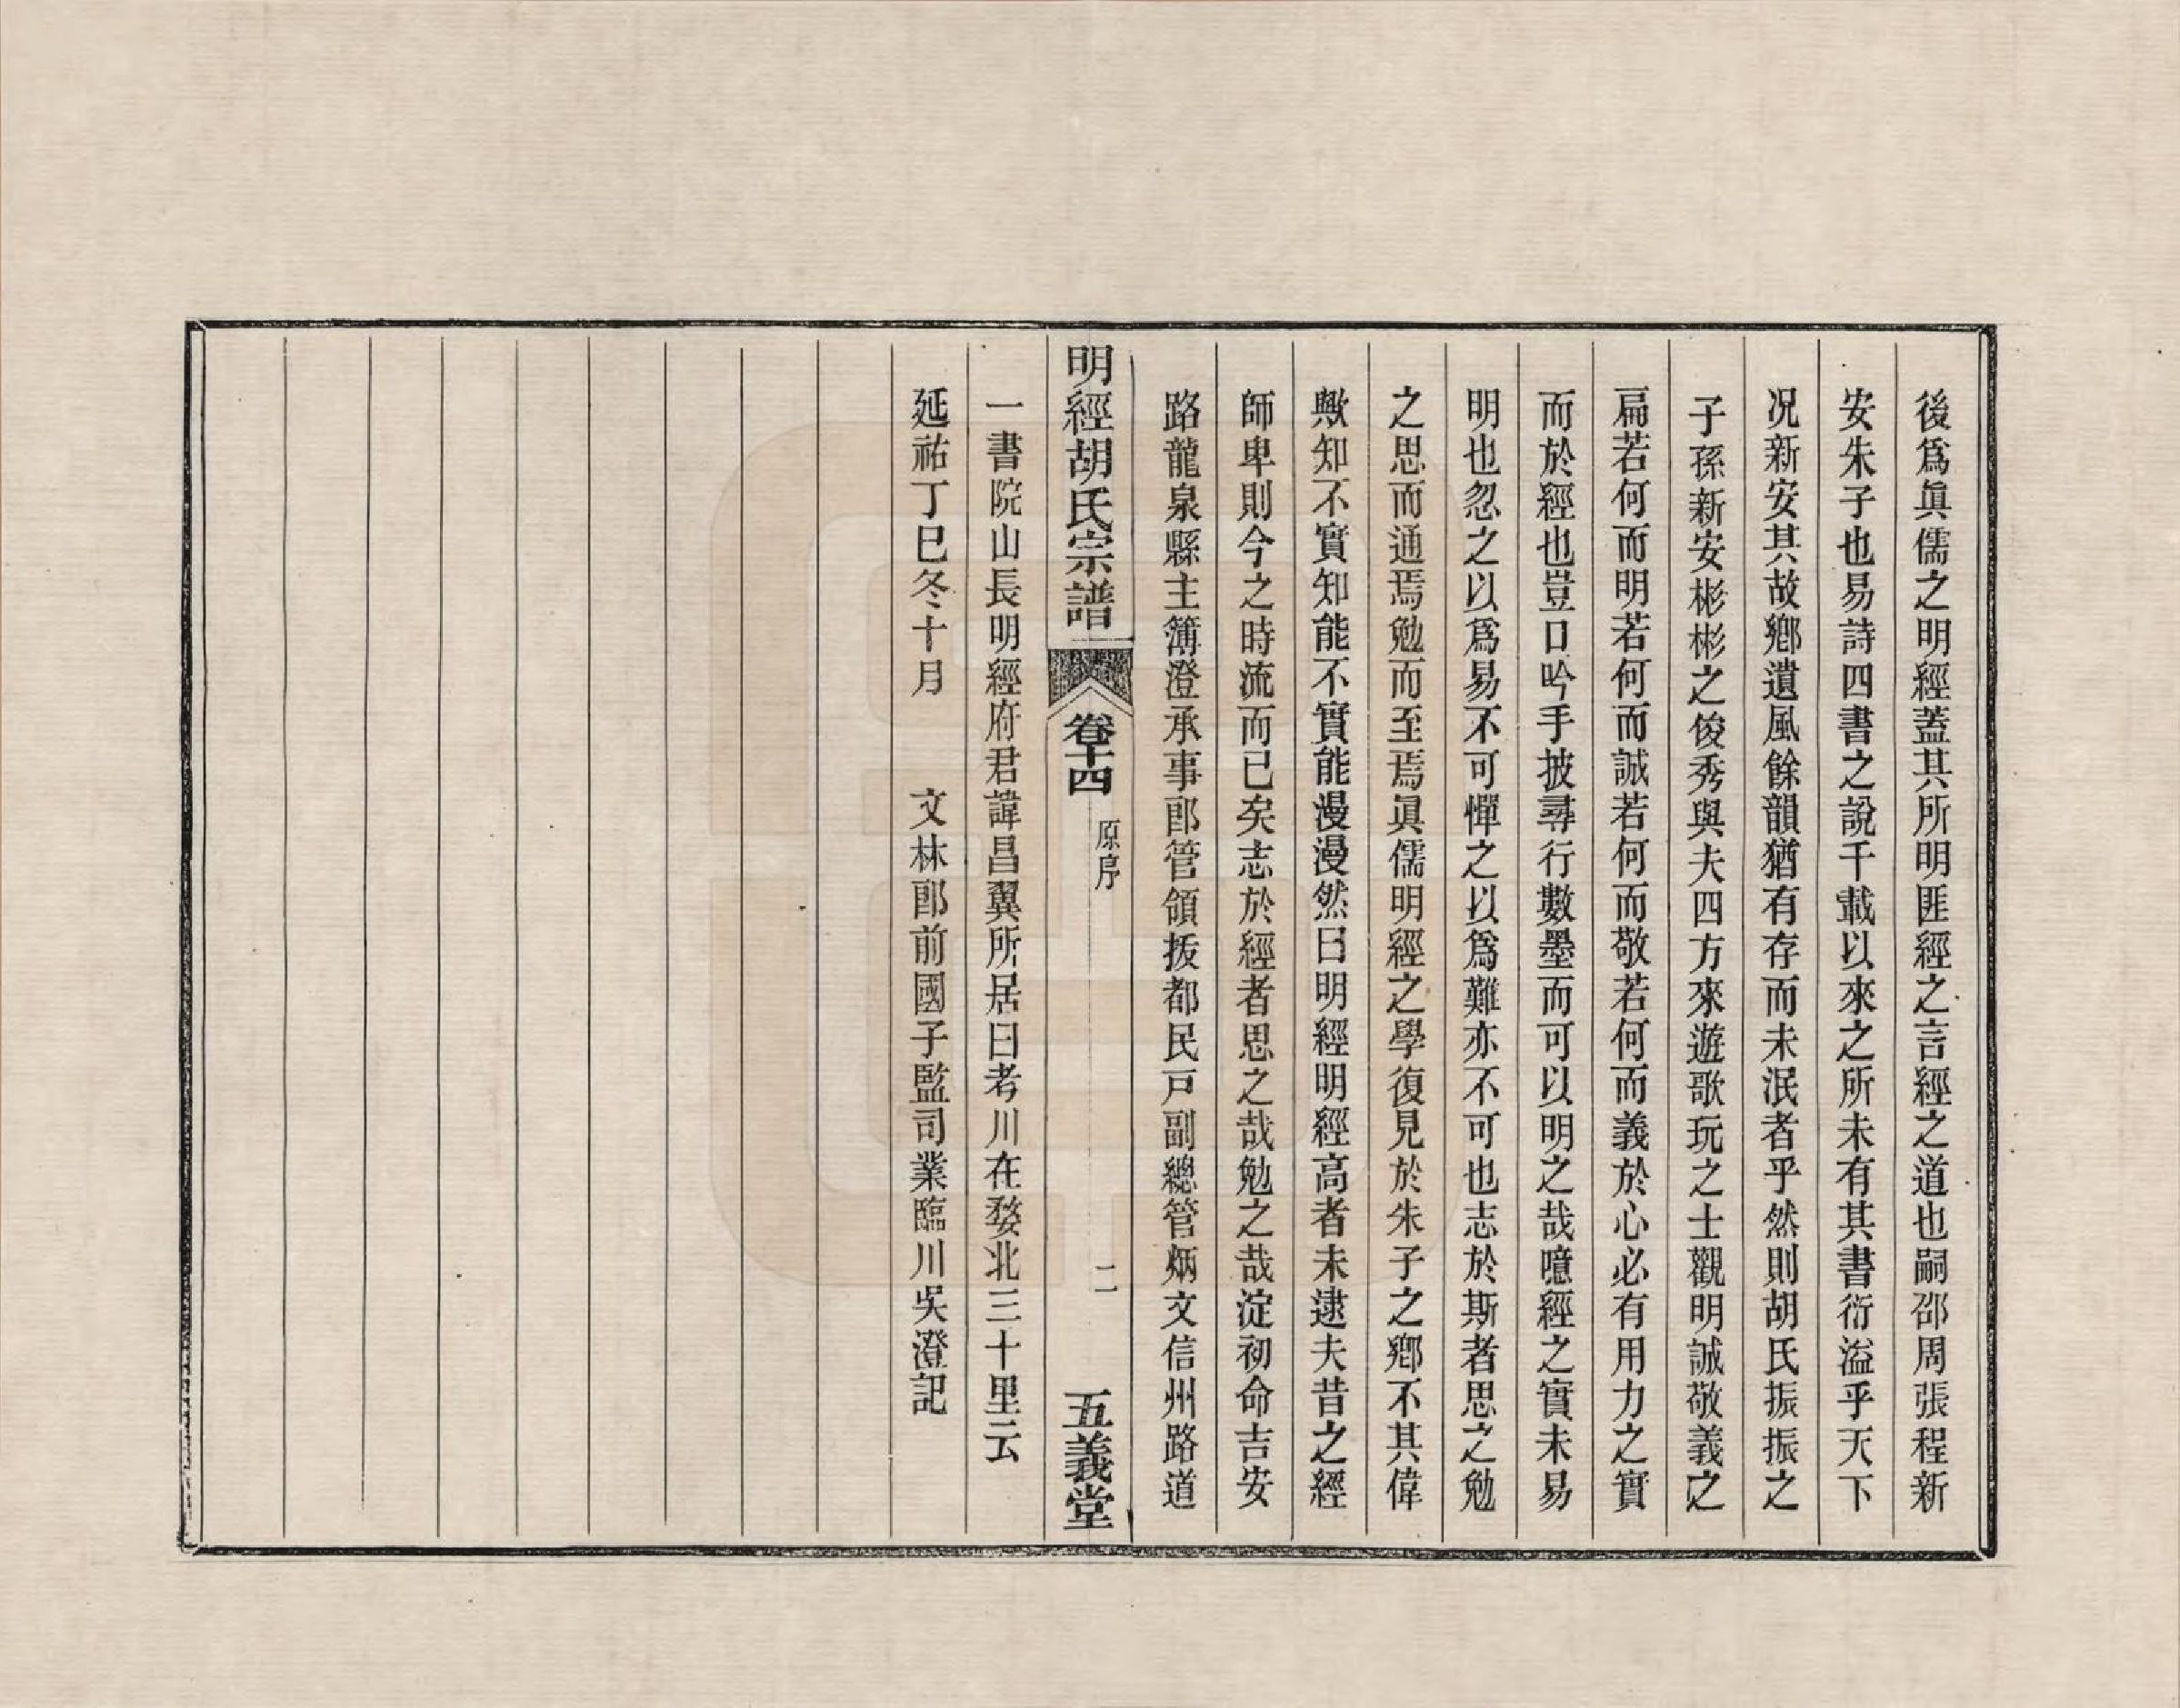 後爲眞儒之明經蓋其所明匪經之言經之道也嗣邵周張程新
安朱子也易詩四書之說千載以來之所未有其書衍溢乎天下
况新安其故鄕遺風餘韻猶有存而未泯者乎然則胡氏振振之
子孫新安彬彬之俊秀與夫四方來遊歌玩之士觀明誠敬義之
扁若何而明若何而誠若何而敬若何而義於心必有用力之實
而於經也豈口吟手披尋行數墨而可以明之哉噫經之實未易
明也忽之以爲易不可憚之以爲難亦不可也志於斯者思之勉
之思而通焉勉而至焉眞儒明經之學復見於朱子之鄕不其偉
歟知不實知能不實能漫漫然曰明經明經高者未逮夫昔之經
師卑則今之時流而已矣志於經者思之哉勉之哉淀初命吉安
路龍泉縣主簿澄承事郎管領拨都民戸副總管炳文信州路道
明經胡氏宗譜 卷十四 原序 二 五義堂
一書院山長明經府君諱昌翼所居曰考川在婺北三十里云
延祐丁巳冬十月 文林郎前國子監司業臨川吳澄記